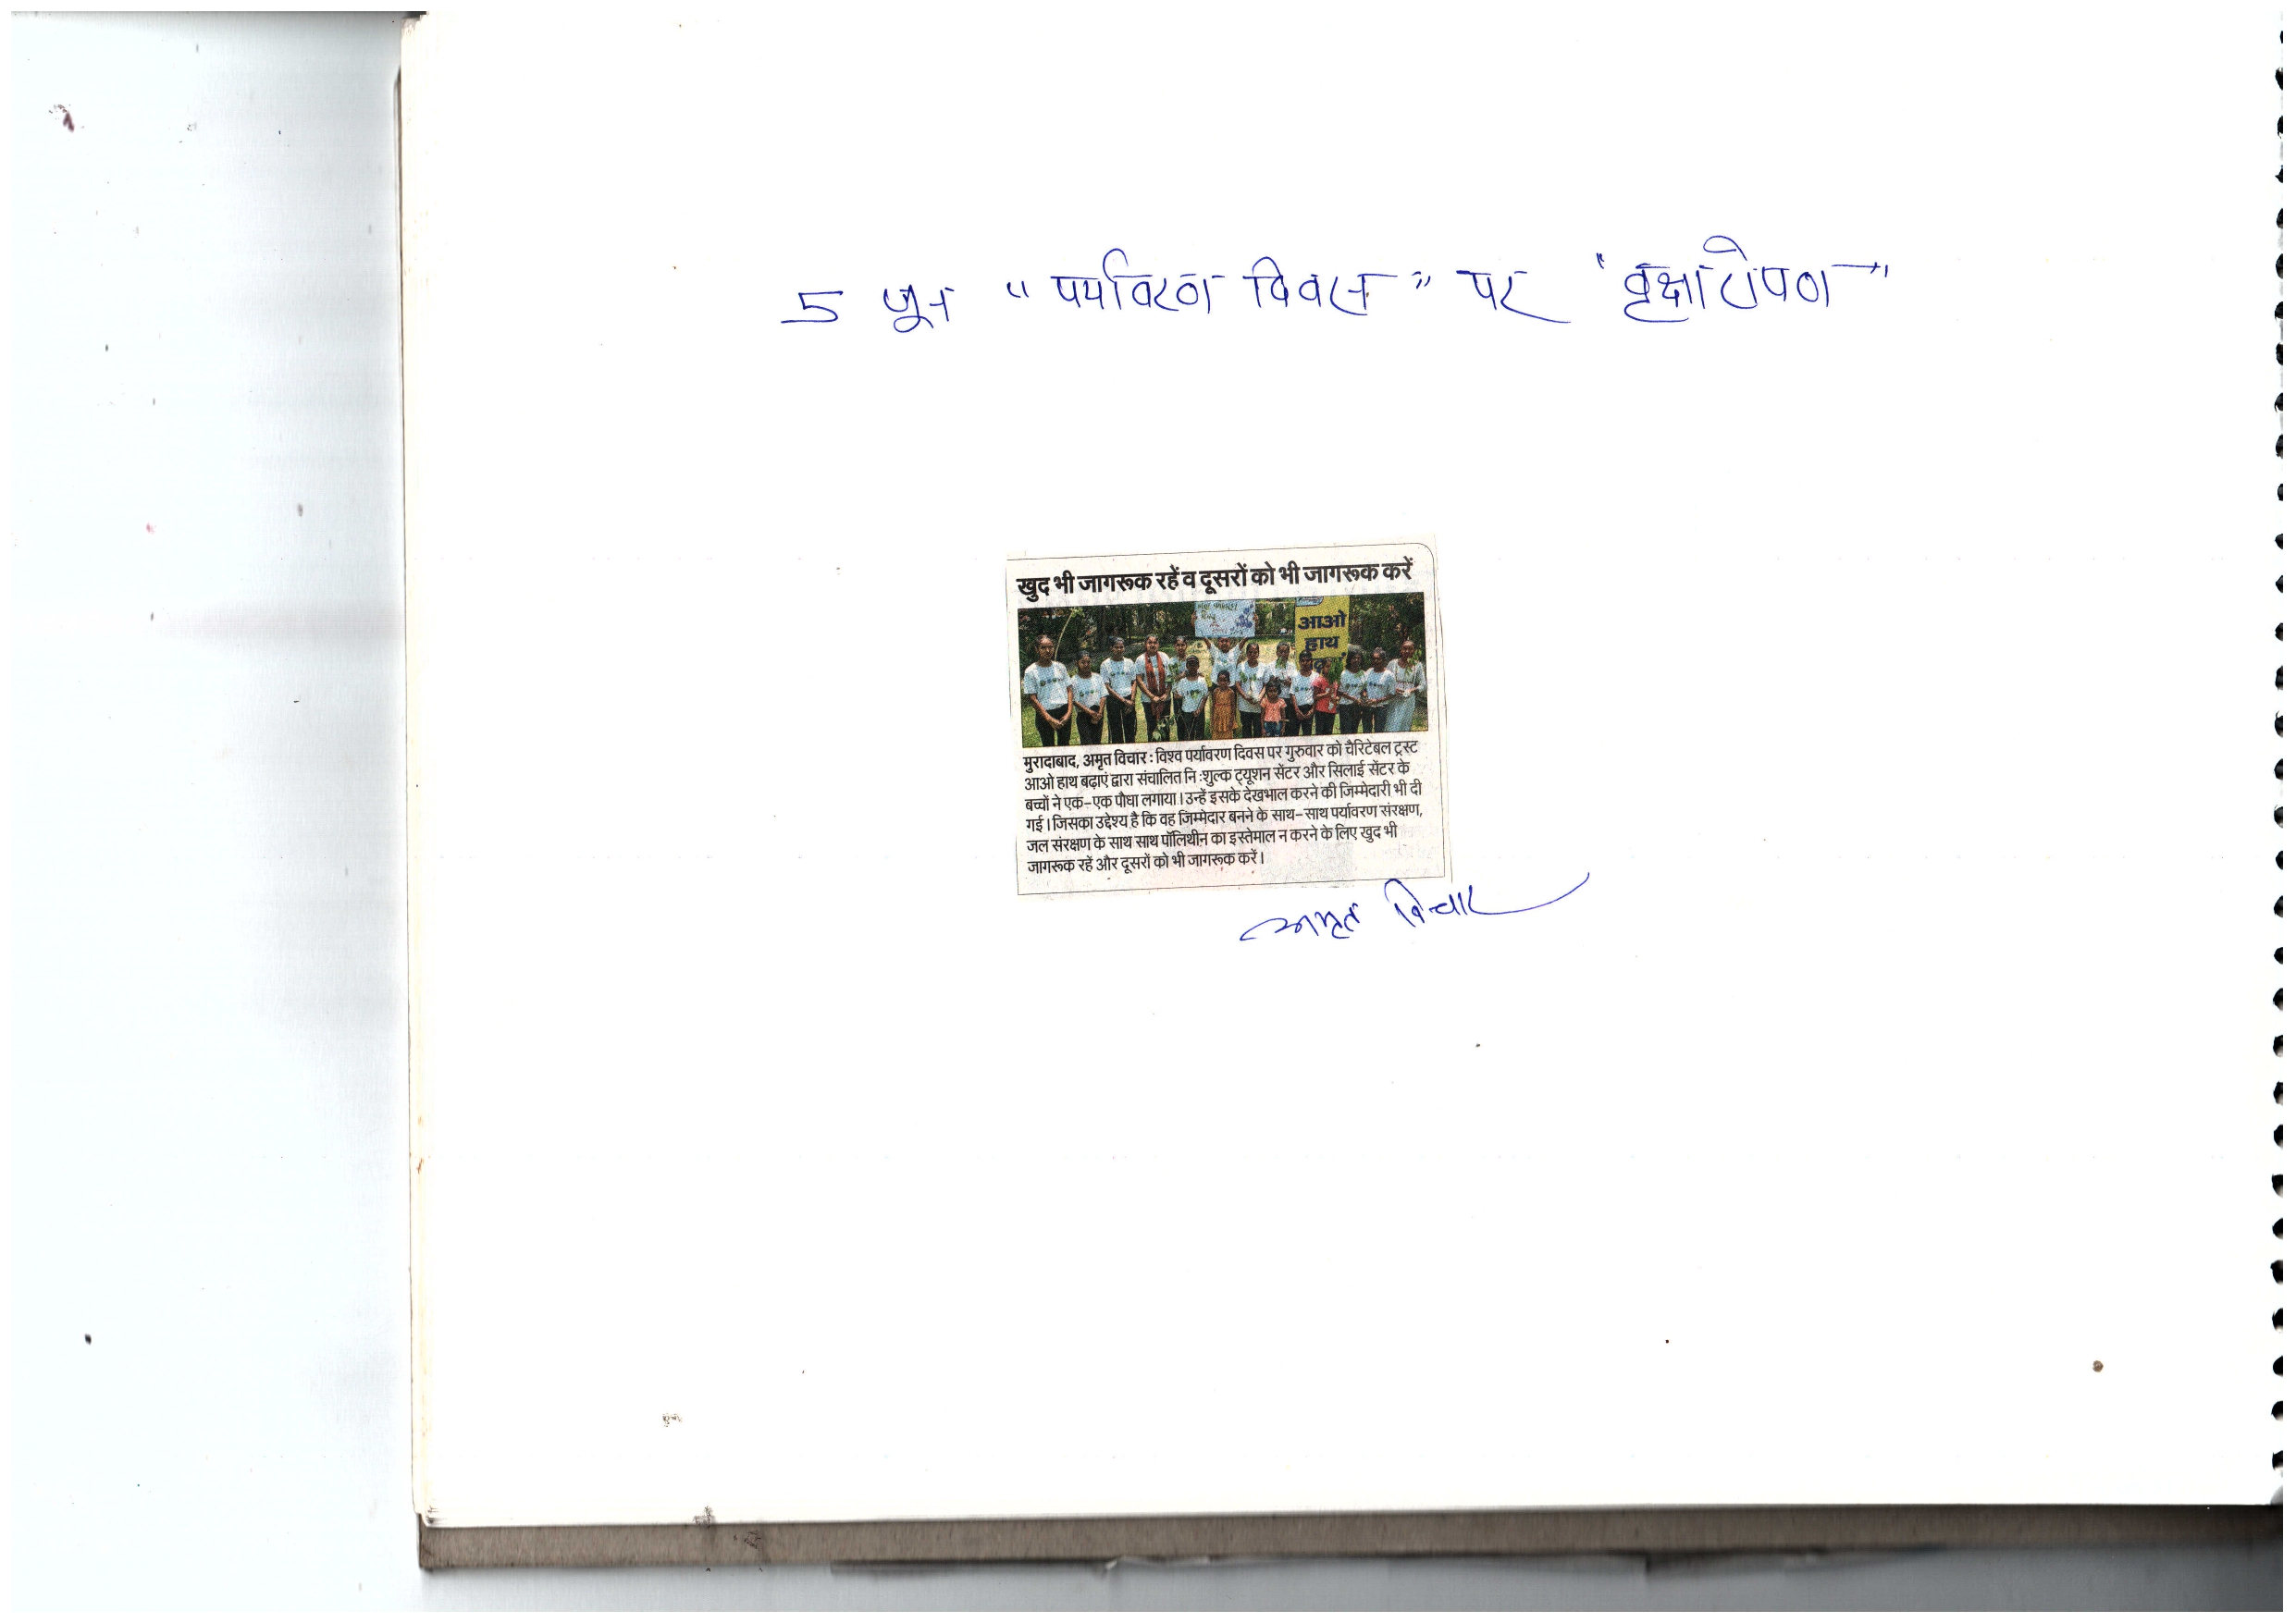 5 जून “पर्यावरण दिवस” पर “वृक्षारोपण”
खुद भी जागरूक रहें व दूसरों को भी जागरूक करें
आओ
हाथ
मुरादाबाद, अमृत विचार : विश्व पर्यावरण दिवस पर गुरुवार को चैरिटेबल ट्रस्ट
आओ हाथ बढ़ाएं द्वारा संचालित नि :शुल्क ट्यूशन सेंटर और सिलाई सेंटर के
बच्चों ने एक-एक पौधा लगाया। उन्हें इसके देखभाल करने की जिम्मेदारी भी दी
गई। जिसका उद्देश्य है कि वह जिम्मेदार बनने के साथ-साथ पर्यावरण संरक्षण,
जल संरक्षण के साथ साथ पॉलिथीन का इस्तेमाल न करने के लिए खुद भी
जागरूक रहें और दूसरों को भी जागरूक करें।
अमृत विचार